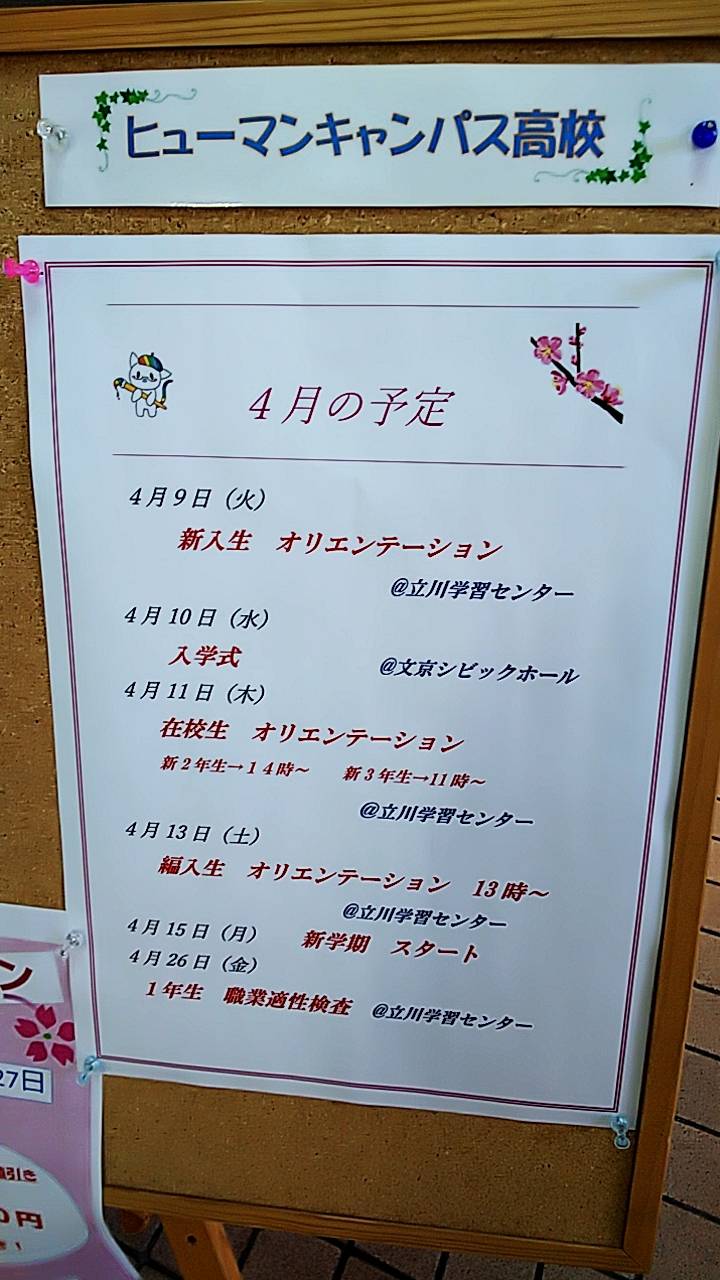 ヒューマンキャンパス高校
４月の予定
４月９日（火）
新入生　オリエンテーション
@立川学習センター
４月10日（水）
入学式　@文京シビックホール
４月11日（木）
在校生　オリエンテーション
新２年生→１４時～　新３年生→11時～
@立川学習センター
４月13日（土）
編入生　オリエンテーション　13時～
@立川学習センター
４月15日（月）　新学期　スタート
４月26日（金）
１年生　職業適性検査　@立川学習センター
ン
27日
引き
0円
！